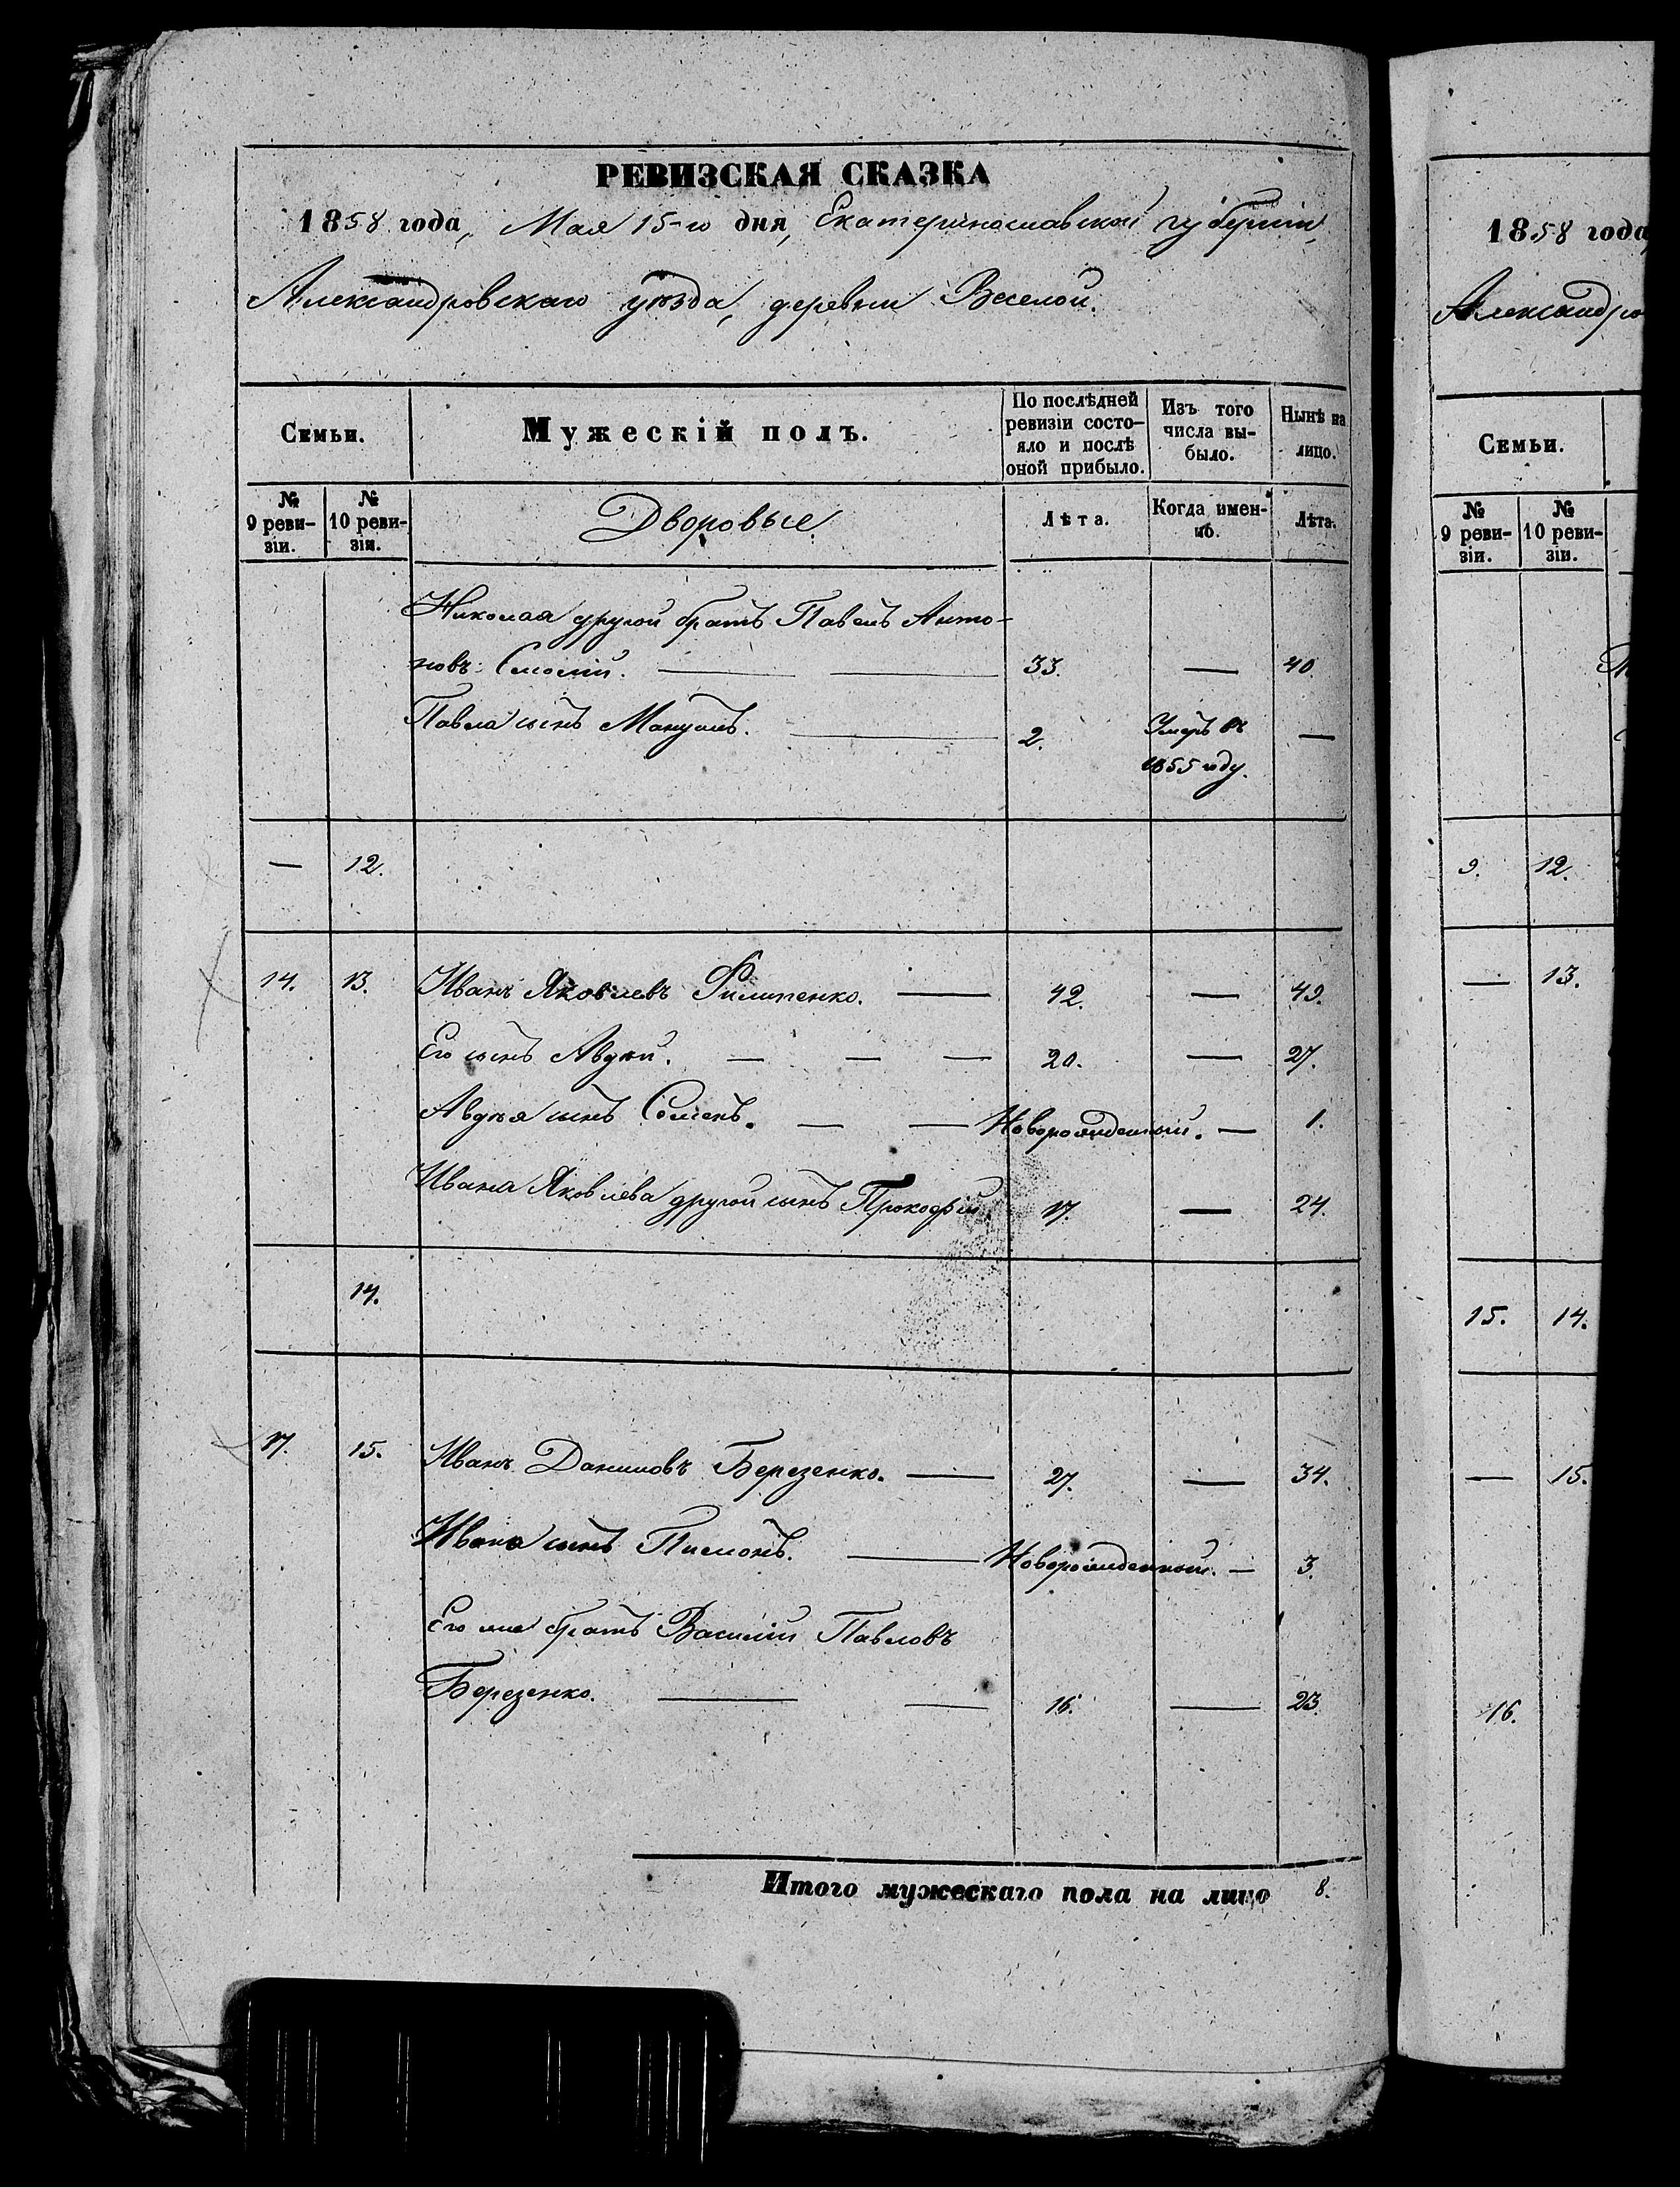 РЕВИЗСКАЯ СКАЗКА
1858 года, Мая 15-го дня, Екатеринославской губерніи,
Александровскаго уѣзда, деревни Веселой.
Семьи.
Мужескій полъ.
По послѣдней
ревизіи состо-
яло и послѣ
оной прибыло.
Изъ того
числа вы-
было.
Нынѣ на
лицо.
№
9 реви-
зіи.
№
10 реви-
зіи.
Дворовые
Лѣта.
Когда имен-
но.
Лѣта.
Николая другой братъ Павелъ Анто-
новъ 33. — 40.
Павла сынъ Мануилъ. 2. Умеръ въ —
1855 году.
— 12.
14. 13. Иванъ Яковлевъ Филипенко. — 42. — 49.
Его сынъ Авдѣй. — — — 20. — 27.
Авдѣя сынъ Семенъ. — — Новорожденный. — 1.
Ивана Яковлева другой сынъ Прокофій. 17. — 24.
14.
17. 15. Иванъ Даниловъ Березенко. — 27. — 34.
Ивана сынъ Пимонъ. — Новорожденный. — 3.
Его же братъ Василій Павловъ
Березенко. — — 16. — 23.
Итого мужескаго пола на лицо 8.
1858 года
Александро
Семьи.
№
9 реви-
зіи.
№
10 реви-
зіи.
9. 12.
— 13.
15. 14.
— 15.
16.